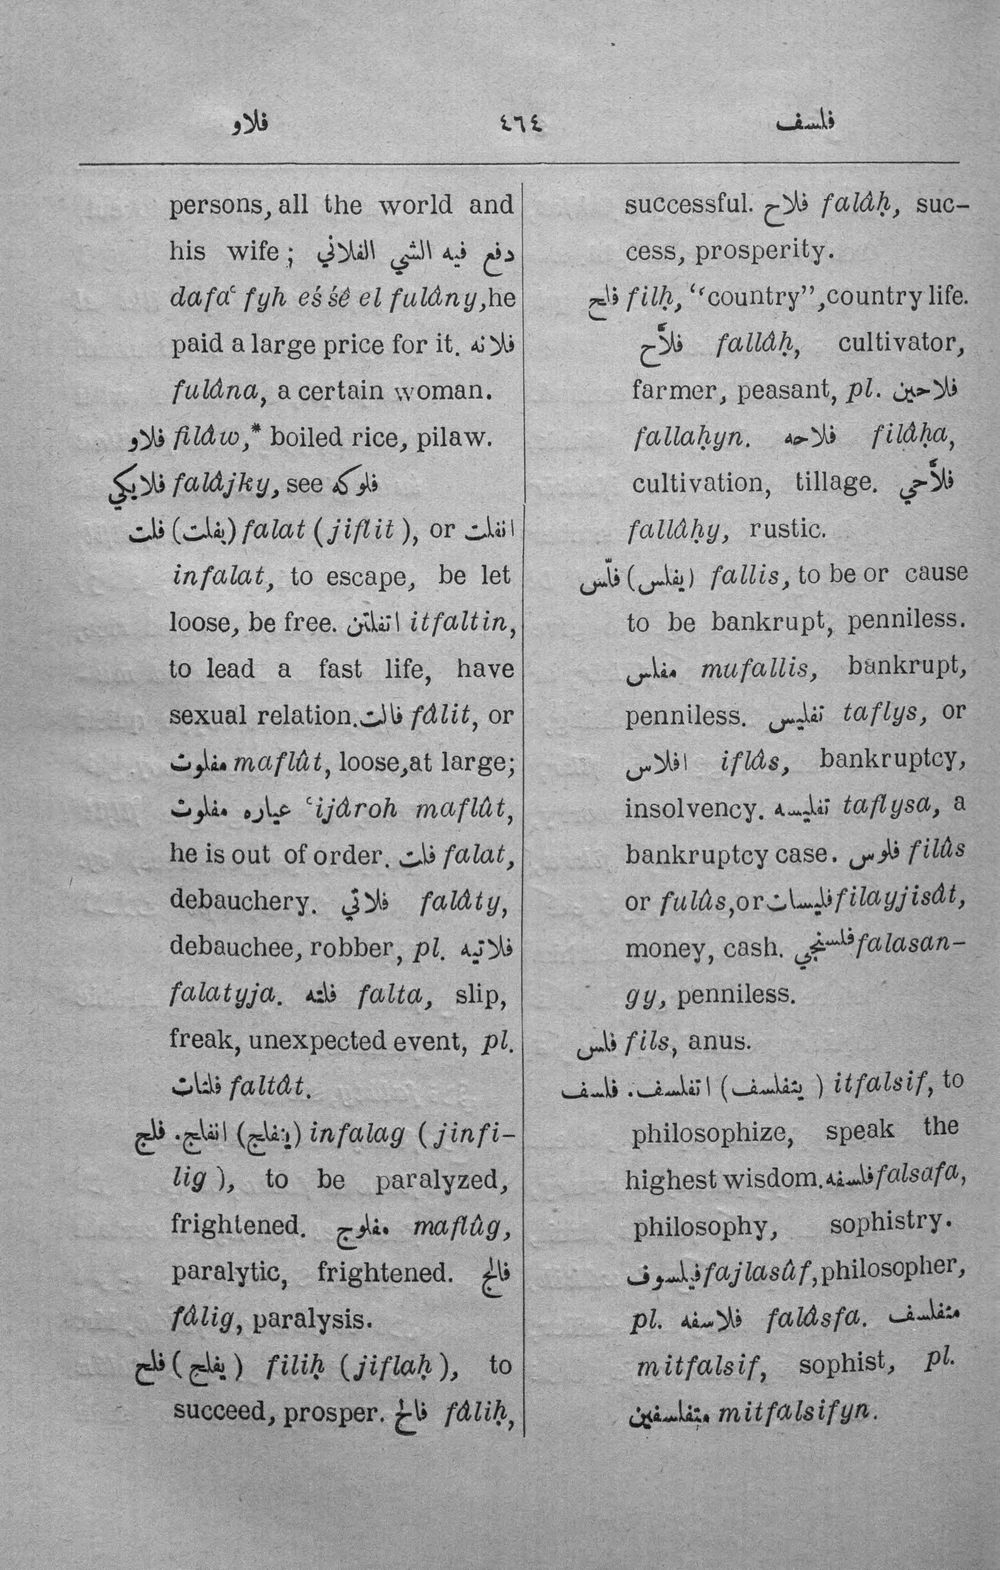 فلاو ٤٦٤ فلسف
persons, all the world and
his wife; دفع فيه الشي الفلاني
dafaʿ fyh eśśê el fulâny, he
paid a large price for it. فلانه
fulâna, a certain woman.
فلاو filâw,* boiled rice, pilaw.
فلايكي falâjky, see فلوكه
فلت (يفلت) falat (jiflit), or انفلت
infalat, to escape, be let
loose, be free. اتفلتن itfaltin,
to lead a fast life, have
sexual relation. فالت fâlit, or
مفلوت maflût, loose, at large;
عياره مفلوت ʿijâroh maflût,
he is out of order. فلت falat,
debauchery. فلاتي falâty,
debauchee, robber, pl. فلاتيه
falatyja. فلته falta, slip,
freak, unexpected event, pl.
فلتات faltât.
فلج. انفلج (ينفلج) infalag (jinfi-
lig), to be paralyzed,
frightened. مفلوج maflûg,
paralytic, frightened. فالج
fâlig, paralysis.
فلح (يفلح) filiḥ (jiflaḥ), to
succeed, prosper. فالح fâliḥ,
successful. فلاح falâḥ, suc-
cess, prosperity.
فلح filḥ, “country”, country life.
فلاّح fallâḥ, cultivator,
farmer, peasant, pl. فلاحين
fallaḥyn. فلاحه filâḥa,
cultivation, tillage. فلاّحي
fallâḥy, rustic.
فلّس (يفلس) fallis, to be or cause
to be bankrupt, penniless.
مفلس mufallis, bankrupt,
penniless. تفليس taflys, or
افلاس iflâs, bankruptcy,
insolvency. تفليسه taflysa, a
bankruptcy case. فلوس filûs
or fulûs, or فليسات filayjisât,
money, cash. فلسنجي falasan-
gy, penniless.
فلس fils, anus.
فلسف. اتفلسف (يتفلسف) itfalsif, to
philosophize, speak the
highest wisdom. فلسفه falsafa,
philosophy, sophistry.
فيلسوف fajlasûf, philosopher,
pl. فلاسفه falâsfa. متفلسف
mitfalsif, sophist, pl.
متفلسفين mitfalsifyn.